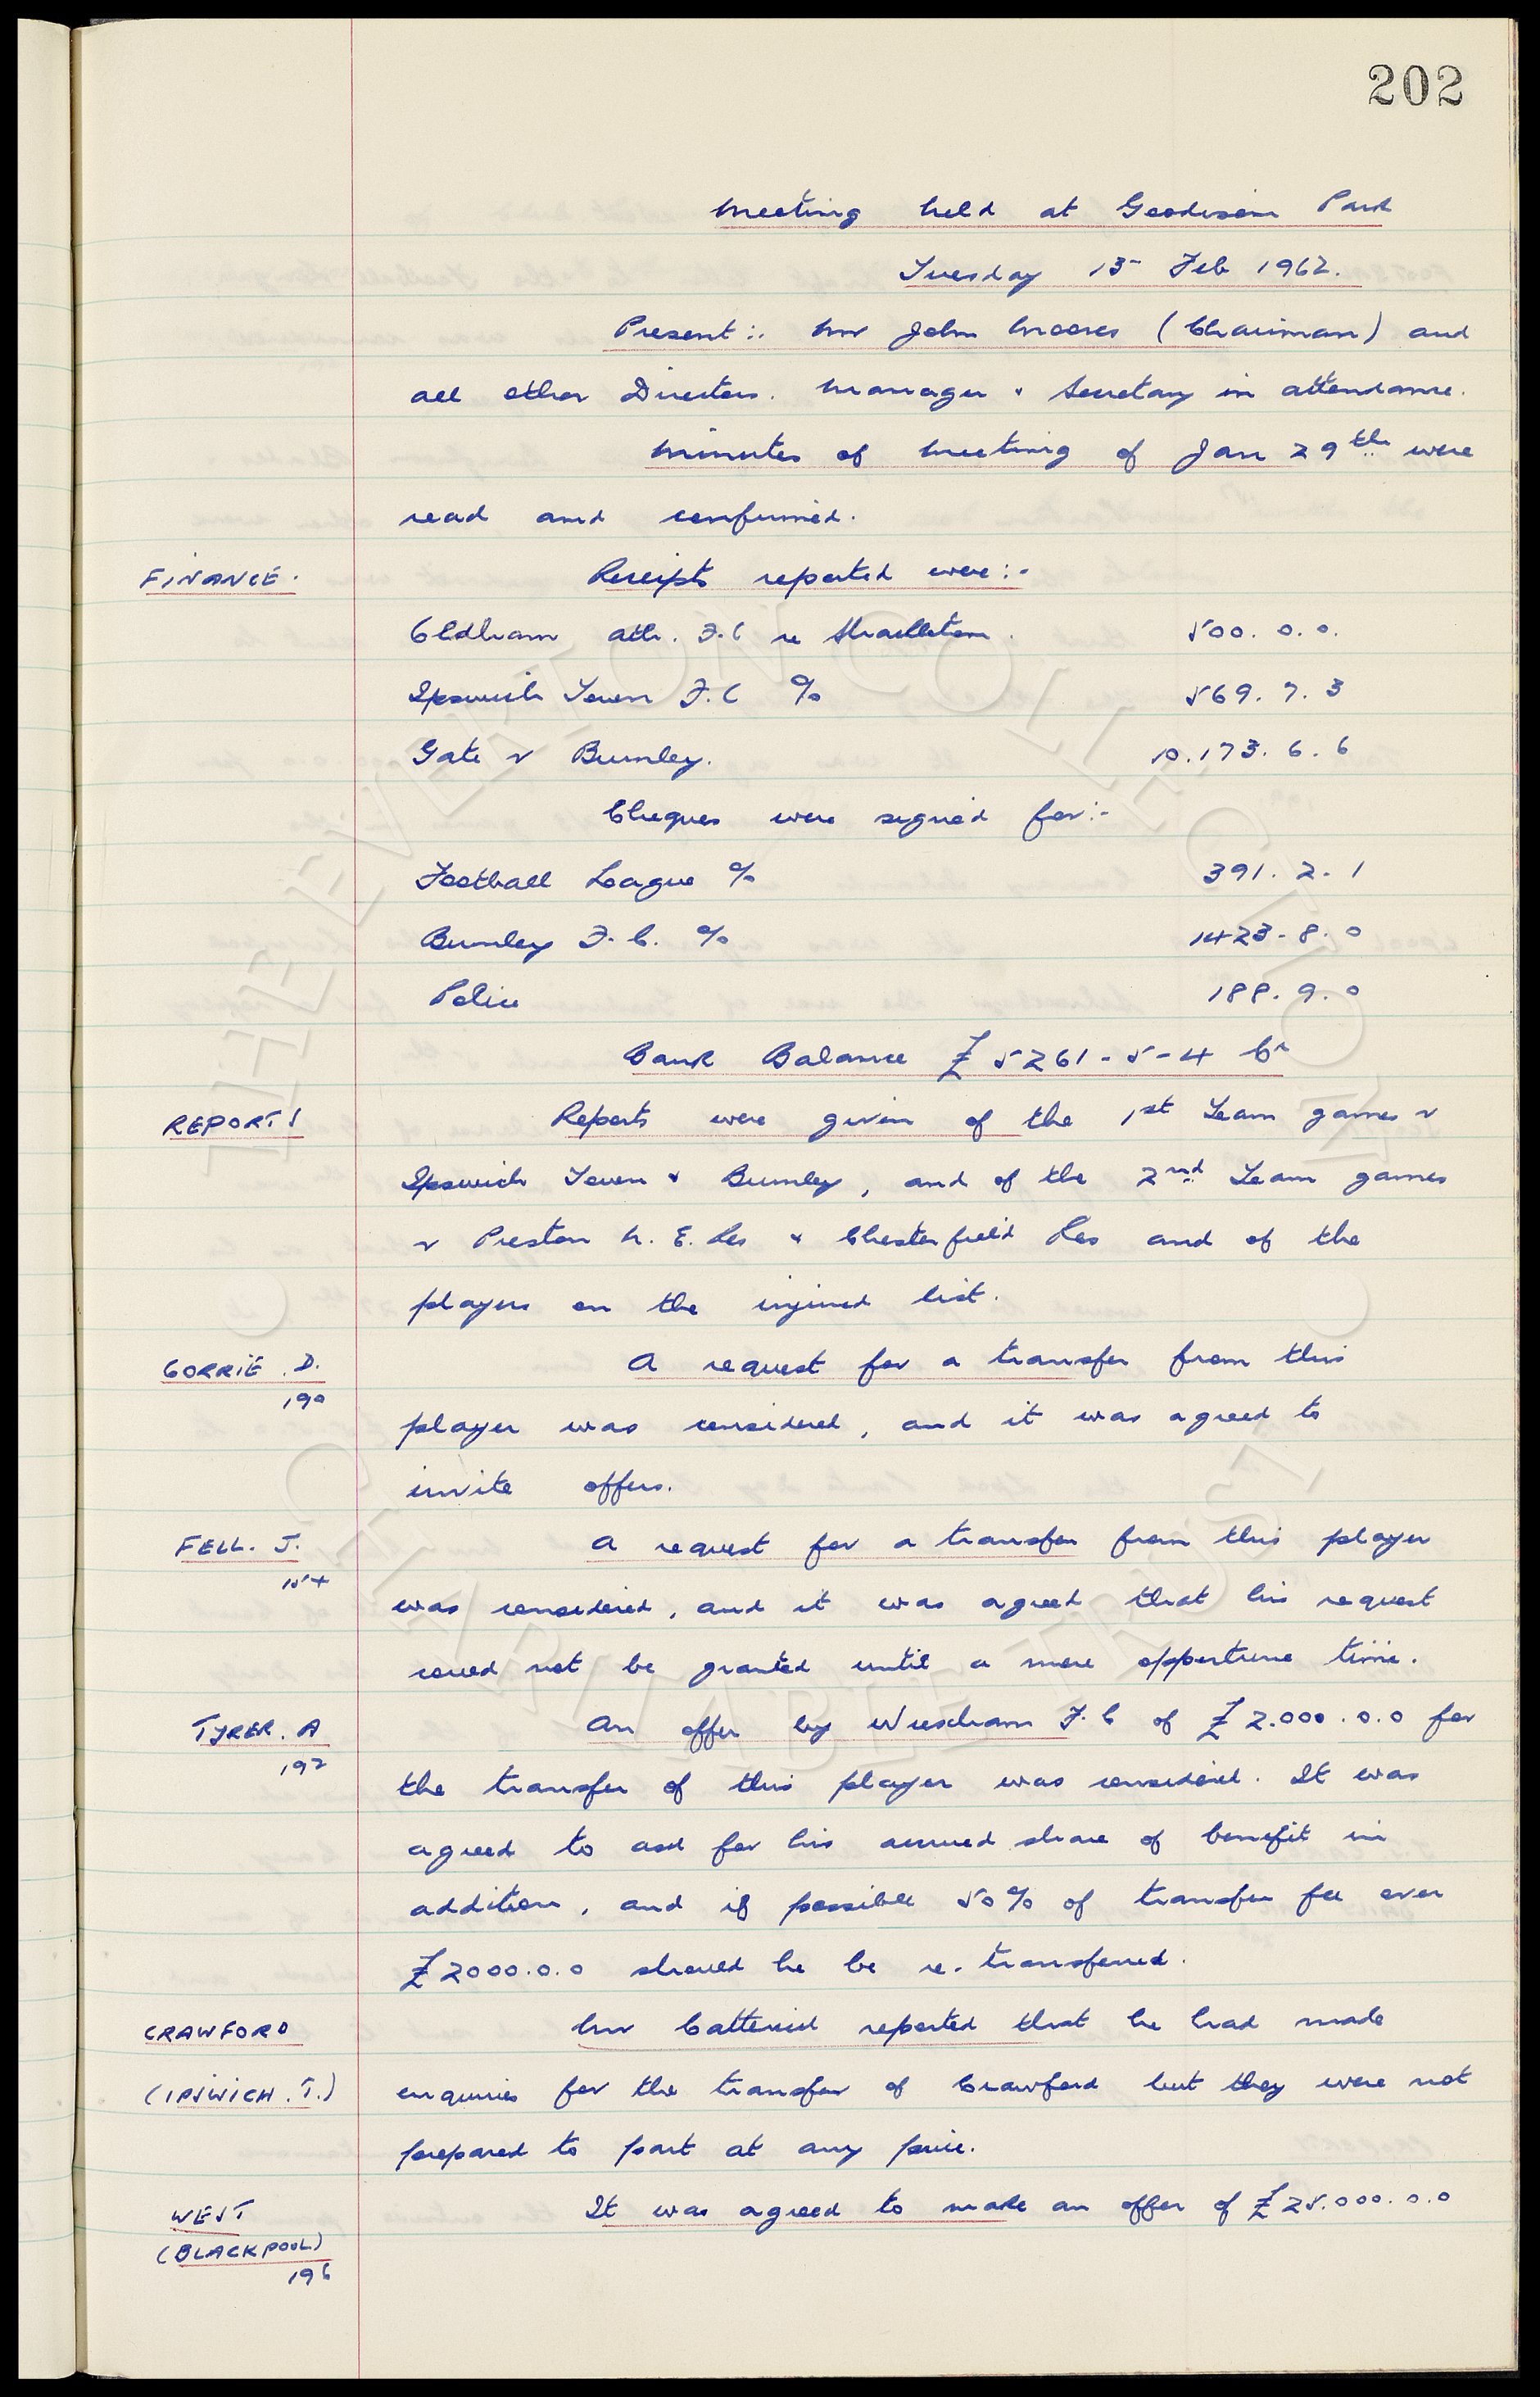 202
Meeting held at Goodison Park
Tuesday 13 Feb 1962.
Present :- Mr John Moores (Chairman) and
all other Directors. Manager & Secretary in attendance.
Minutes of meeting of Jan 29th were
read and confirmed.
FINANCE. Receipts reported were :-
Oldham Ath. F.C re Shackleton. 500. 0. 0.
Ipswich Town F.C % 569. 7. 3
Gate v Burnley. 10.173. 6. 6
Cheques were signed for :-
Football League % 391. 2. 1
Burnley F.C. % 1423 - 8. 0
Police 188. 9. 0
Bank Balance £5261 - 5 - 4 Cr
REPORTS Reports were given of the 1st Team games v
Ipswich Town & Burnley, and of the 2nd Team games
v Preston N. E. Res & Chesterfield Res and of the
players on the injured list.
GORRIE .D. A request for a transfer from this
190
player was considered, and it was agreed to
invite offers.
FELL. J. A request for a transfer from this player
154
was considered, and it was agreed that his request
could not be granted until a more opportune time.
TYRER. A An offer by Wrexham F.C of £2.000.0.0 for
192
the transfer of this player was considered. It was
agreed to ask for his accrued share of benefit in
addition, and if possible 50% of transfer fee over
£2000.0.0 should he be re-transferred.
CRAWFORD Mr Catterick reported that he had made
(IPSWICH .T.) enquiries for the transfer of Crawford but they were not
prepared to part at any price.
WEST It was agreed to make an offer of £25.000.0.0
(BLACKPOOL)
196
THE EVERTON COLLECTION
CHARITABLE TRUST